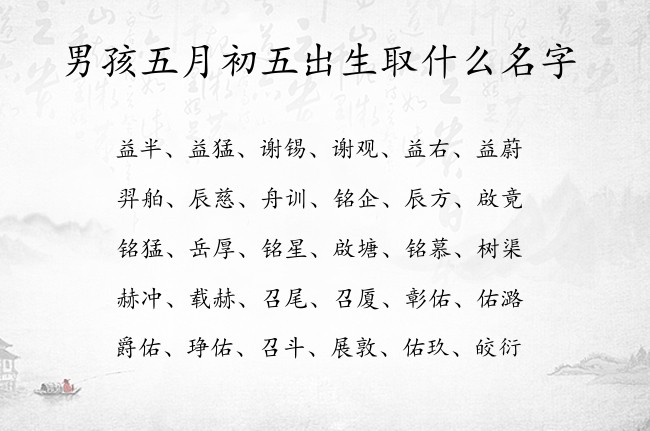 男孩五月初五出生取什么名字
益半、益猛、谢锡、谢观、益右、益蔚
羿舶、辰慈、舟训、铭企、辰方、啟竟
铭猛、岳厚、铭星、啟塘、铭慕、树渠
赫冲、载赫、召尾、召厦、彰佑、佑潞
爵佑、琤佑、召斗、展敦、佑玖、皎衍